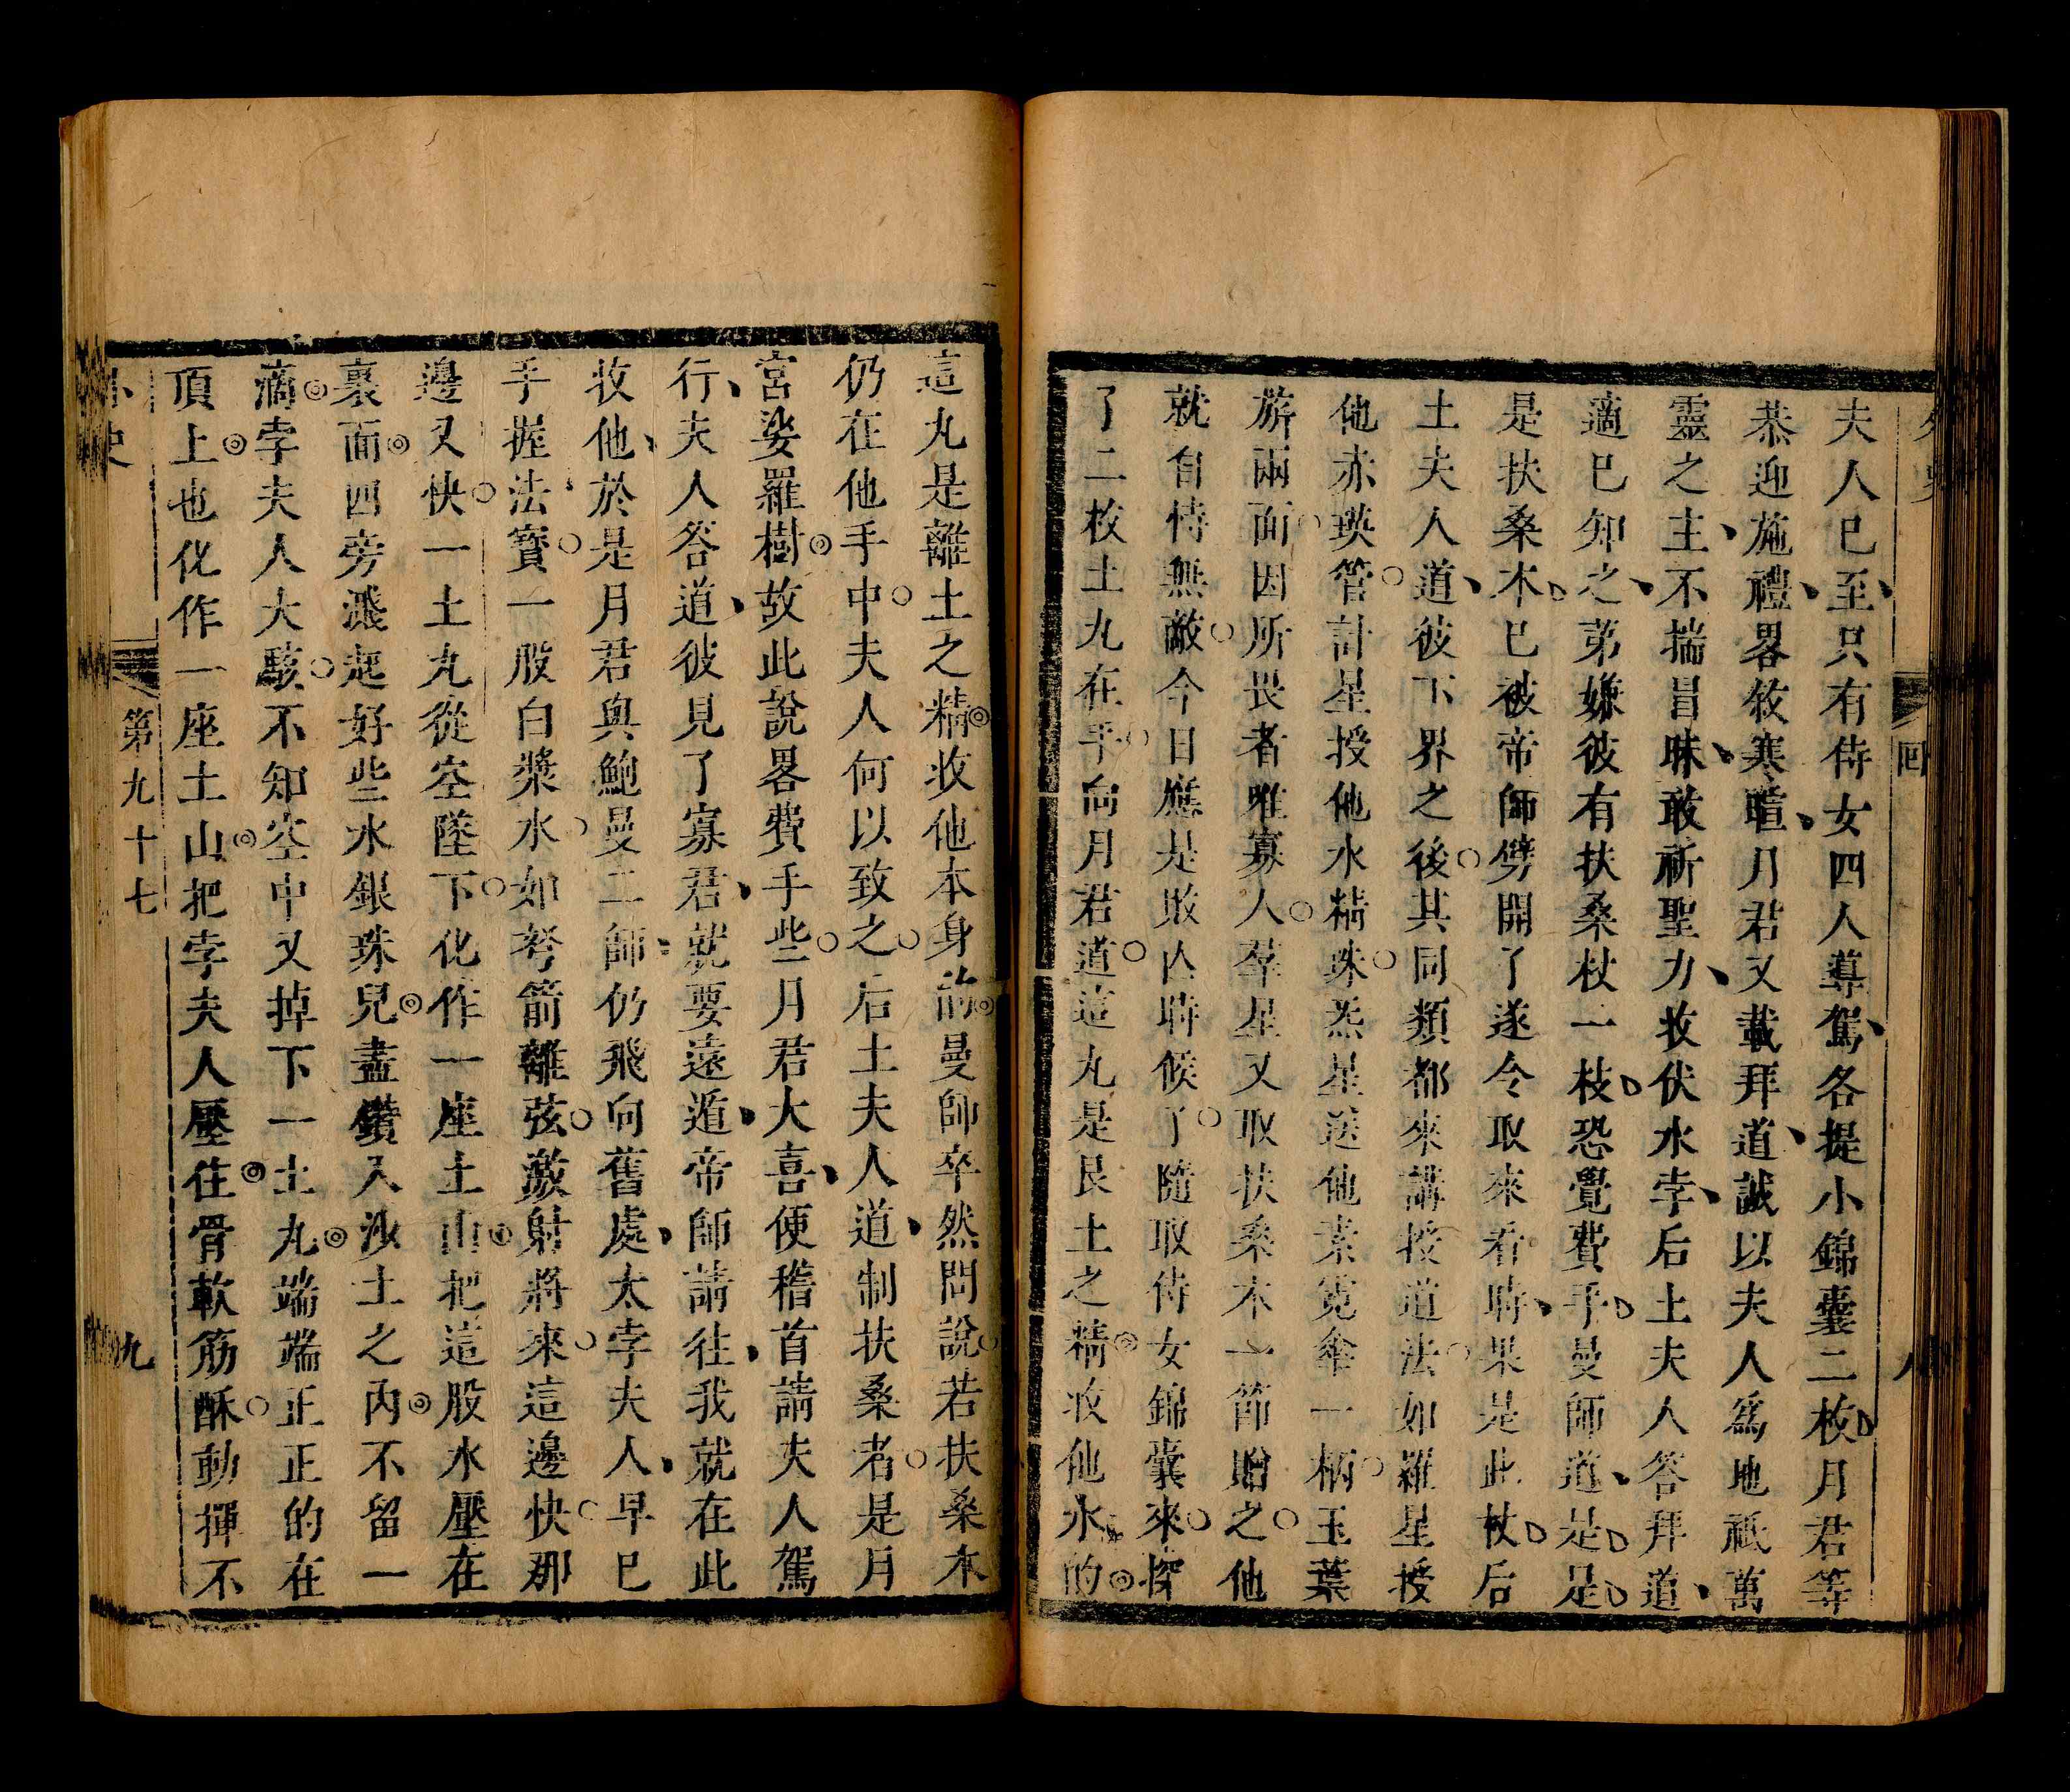 夫人已至只有侍女四人導駕各提小錦囊二枚月君等
恭迎施禮畧敘寒暄月君又載拜道誠以夫人爲地祇萬
靈之主不揣冒昧敢祈聖力收伏水孛后土夫人答拜道
適已知之苐嫌彼有扶桑杖一枝恐覺費手曼師道是是
是扶桑木已被帝師劈開了遂令取來看時果是此杖后
土夫人道彼下界之後其同類都來講授道法如羅星授
他赤瑛管計星授他水精珠炁星送他素霓傘一柄玉葉
旂兩面因所畏者唯寡人羣星又取扶桑木一節贈之他
就自恃無敵今日應是敗亡時候了隨取侍女錦囊來探
了二枚土丸在手向月君道這丸是艮土之精收他水的
這丸是離土之精收他本身的曼師卒然問說若扶桑木
仍在他手中夫人何以致之后土夫人道制扶桑者是月
宮娑羅樹故此說畧費手些月君大喜便稽首請夫人駕
行夫人答道彼見了寡君就要遠遁帝師請往我就在此
收他於是月君與鮑曼二師仍飛向舊處太孛夫人早已
手握法寶一股白漿水如弩箭離弦激射將來這邊快那
邊又快一土丸從空墜下化作一座土山把這股水壓在
裏面四旁濺起好些水銀珠兒盡鑽入沙土之內不留一
滴孛夫人大駭不知空中又掉下一土丸端端正正的在
頂上也化作一座土山把孛夫人壓住骨軟筋酥動揮不
外史
回
八
外史
第九十七
九